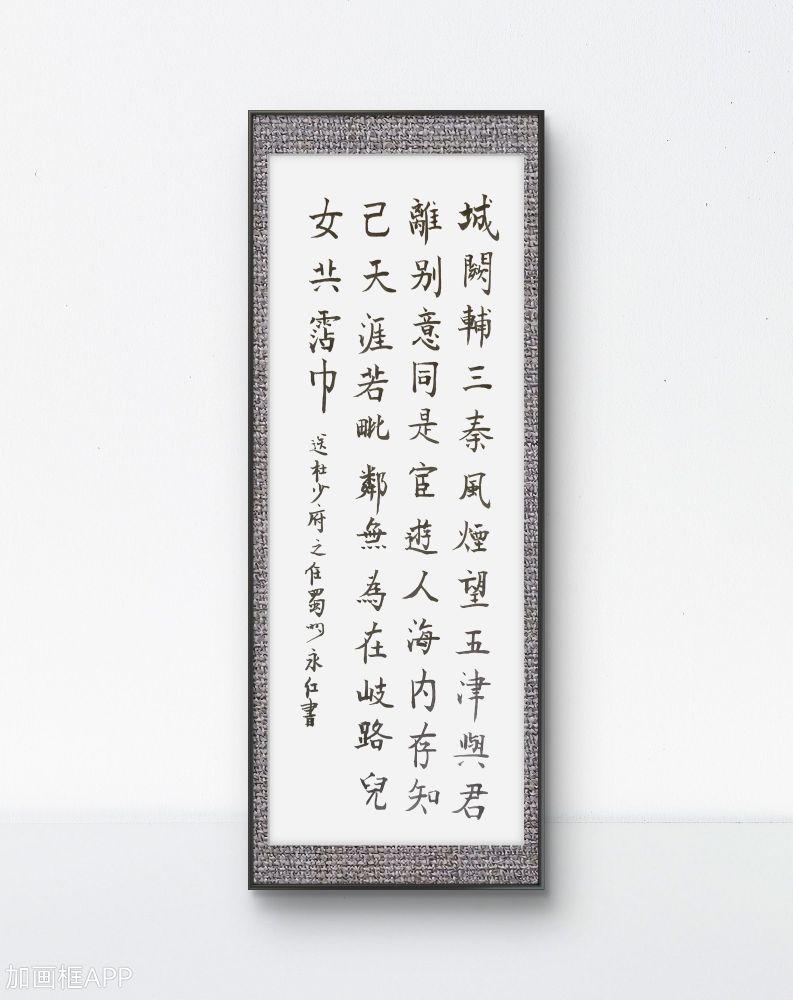 城闕輔三秦風煙望五津與君
離别意同是宦遊人海内存知
己天涯若毗鄰無為在岐路兒
女共霑巾
送杜少府之任蜀州永仁書
加画框APP